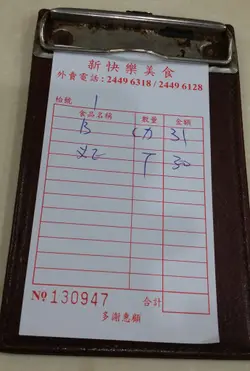 新快樂美食
外賣電話：2449 6318 / 2449 6128
枱號 1
食品名稱 數量 金額
B 31
30
№ 130947 合計
多謝惠顧